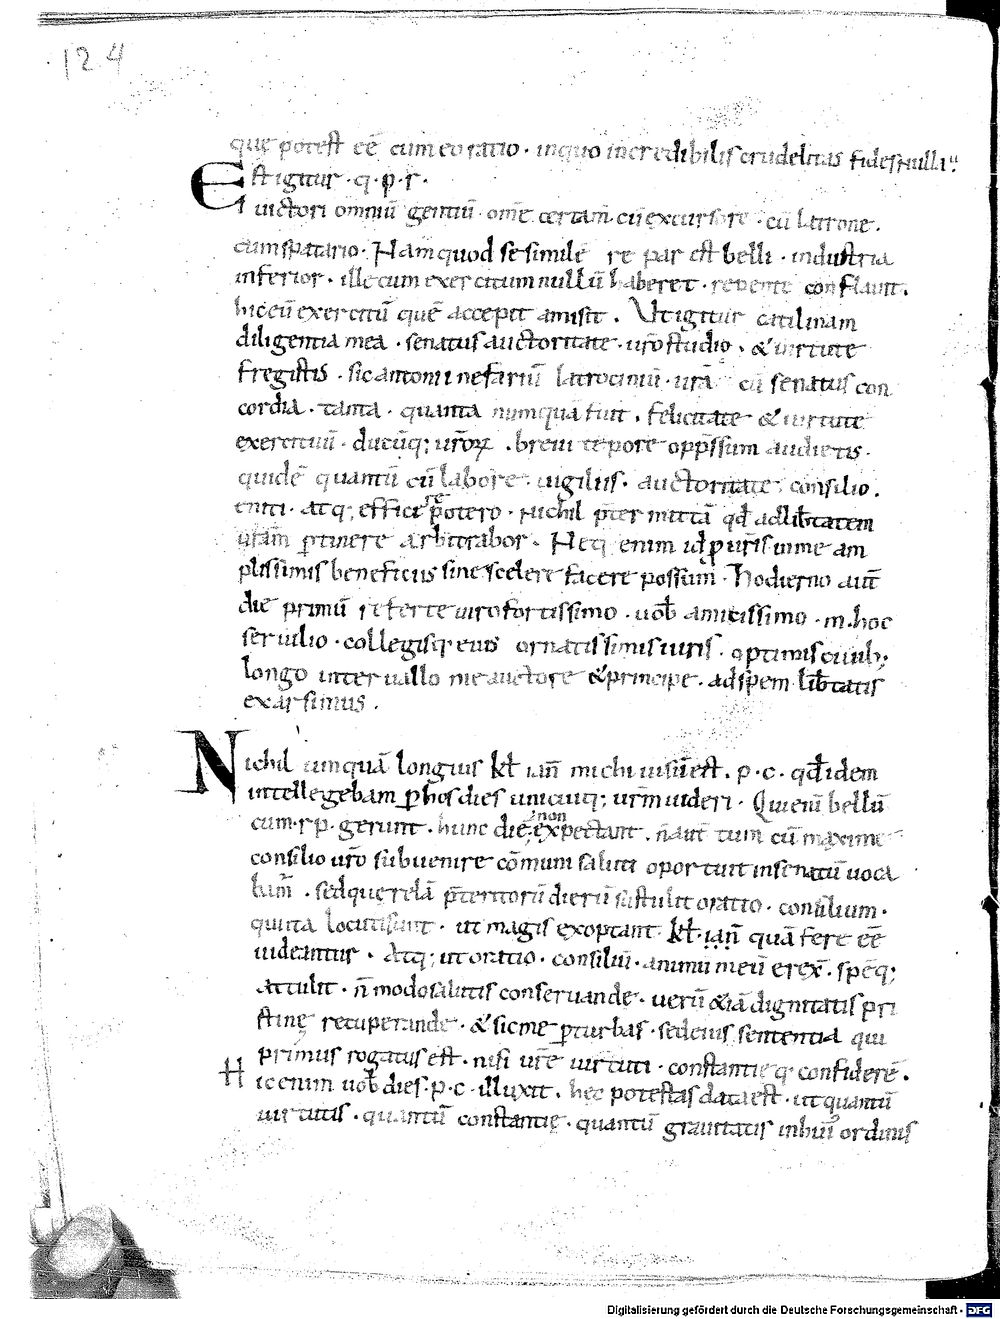 124
quę potest eē cum eo ratio · in quo incredibilis crudelitas fides nulla.
Est igitur · q · p · r ·
victori omniū gentiū · om̄e certam̄ cū excursore · cū latrone .
cum spatario · Nam quod se simile re par est belli · industria
inferior · ille cum exercitum nullū haberet · repente conflauit .
hic eū exercitū quē accepit amisit . Ut igitur catilinam
diligentia mea · senatus auctoritate · uro studio . & uirtute
fregistis · sic antonii nefariū latrociniū · urā cū senatus con
cordia . tanta · quanta numquā fuit . felicitate & uirtute
exercituū · ducūq; uroꝝ . breui tēpore opp̄ssum audietis ·
quidē quantū cū labore · uigiliis . auctoritate · consilio .
eniti · atq; efficere potero · Nichil p̄ter mittā qd̄ ad lib̄tatem
urām ꝑtinere arbitrabor . Neq enim id p uris in me am
plissimis beneficiis sine scelere facere possum · Hodierno aut̄
die primū referte uiro fortissimo · uob̄ amicissimo · m . hoc
seruilio · collegisq eius ornatissimis uiris · optimis ciuib;
longo interuallo me auctore & principe . ad spem lib̄tatis
exarsimus .
Nichil umquā longius kł ian̄ michi uisū est . p · c · qd̄ idem
intellegebam ꝑ hos dies unicuiq; urm̄ uideri · Qui enī bellū
cum · r p · gerunt . hunc diē non expectant . n̄ aut̄ tum cū maxime
consilio uro subuenire cōmuni saluti oporteret in senatū uoca
bant̄ . sed querelā p̄teritorū dierū sustulit oratio · consulum ·
qui ita locuti sunt · ut magis exoptant kł · ian̄ quā sere eē
uideantur . Atq; ut oratio · consiliū · animū meū erex̄ . spēq;
attulit · n̄ modo salutis conseruande · uerū & iā dignitatis pri
stinę recuperande · & sic me ꝑturbas · sed eius sententia qui
primus rogatus est . nisi urē uirtuti · constantię q confiderē .
Hic enim uob̄ dies · p · c · illuxit . hec potestas data est · ut quantū
uirtutis · quantū constantię · quantū grauitatis in hui ordinis
Digitalisierung gefördert durch die Deutsche Forschungsgemeinschaft - DFG